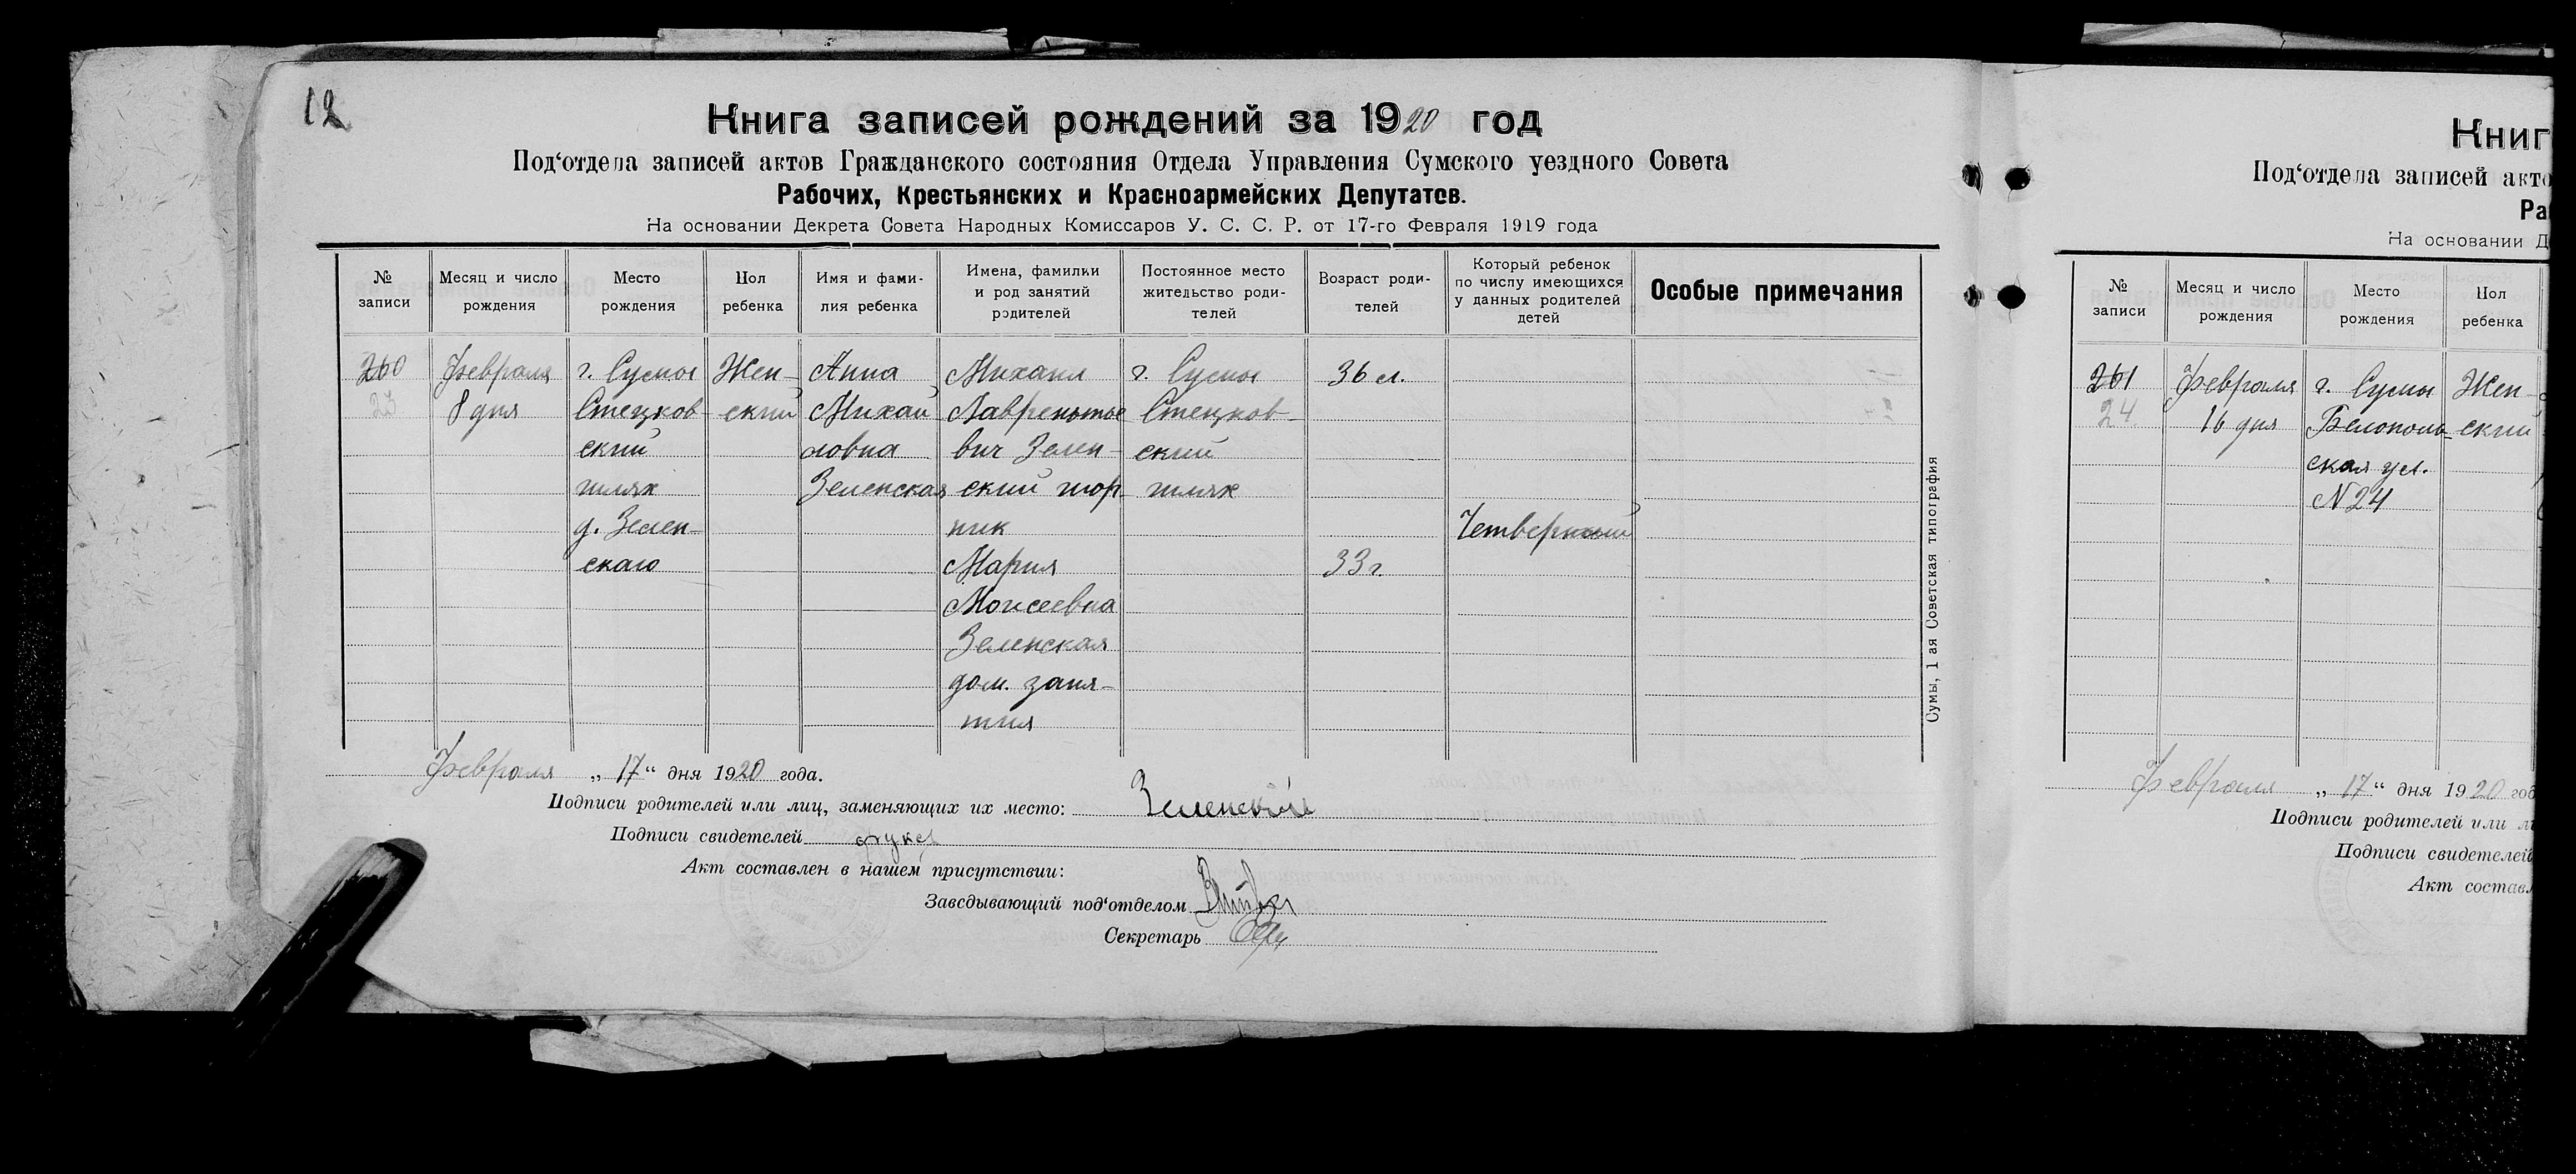 12
Книга записей рождений за 1920 год
Под‘отдела записей актов Гражданского состояния Отдела Управления Сумского уездного Совета
Рабочих, Крестьянских и Красноармейских Депутатов.
На основании Декрета Совета Народных Комиссаров У. С. С. Р. от 17-го Февраля 1919 года
№ записи
Месяц и число рождения
Место рождения
Пол ребенка
Имя и фами-
лия ребенка
Имена, фамилии
и род занятий
родителей
Постоянное место
жительство роди-
телей
Возраст роди-
телей
Который ребенок
по числу имеющихся
у данных родителей
детей
Особые примечания
260
23
Февраля
8 дня
г. Сумы
Стецков-
ский
шлях
д. Зелен-
скаго
Жен-
ский
Анна
Михай
ловна
Зеленская
Михаил
Лаврентье
вич Зелен-
ский шор-
ник
Мария
Моисеевна
Зеленская
дом. заня-
тия
г. Сумы
Стецков-
ский
шлях
36 л.
33 г.
Четвертый
Февраля „17“ дня 1920 года.
Подписи родителей или лиц, заменяющих их место: Зеленский
Подписи свидетелей
Акт составлен в нашем присутствии:
Заведывающий под‘отделом
Секретарь
Сумы, 1 ая Советская типография
Книг
Под‘отдела записей акто
Ра
На основании Д
№ записи
Месяц и число рождения
Место рождения
Пол ребенка
261
24
Февраля
16 дня
г. Сумы
Белополь-
ская ул.
N 24
Жен-
ский
Февраля „17“ дня 1920 год
Подписи родителей или л
Подписи свидетелей
Акт состав